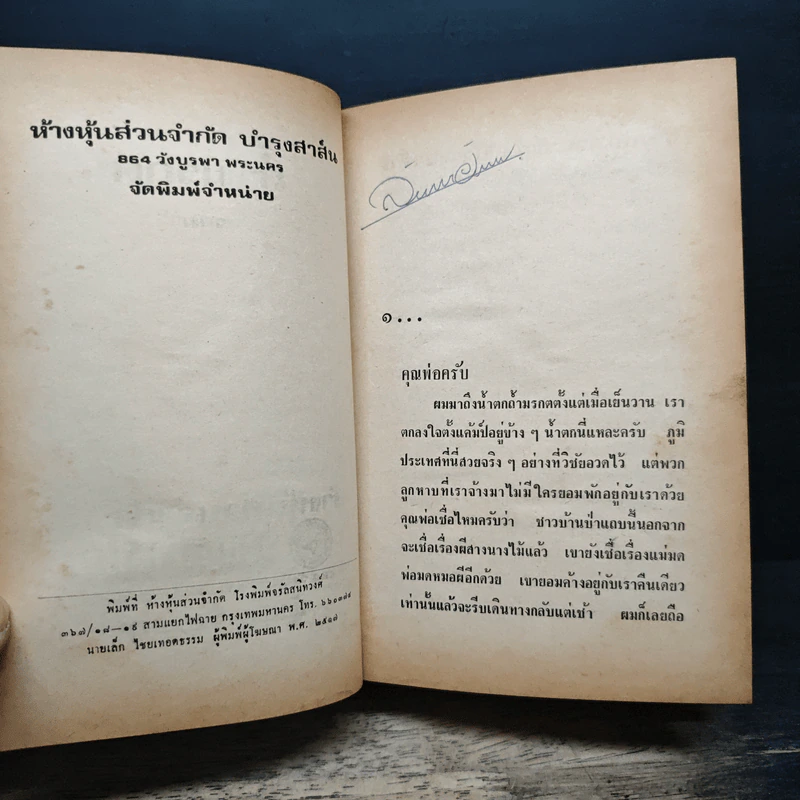 ห้างหุ้นส่วนจำกัด บำรุงสาส์น
864 วังบูรพา พระนคร
จัดพิมพ์จำหน่าย
พิมพ์ที่ ห้างหุ้นส่วนจำกัด โรงพิมพ์จรัลสนิทวงศ์
๓๖๗/๑๘–๑๙ สามแยกไฟฉาย กรุงเทพมหานคร โทร.
นายเล็ก ไชยเทอดธรรม ผู้พิมพ์ผู้โฆษณา พ.ศ. ๒๕๑๗
๑...
คุณพ่อครับ
ผมมาถึงน้ำตกถ้ำมรกตตั้งแต่เมื่อเย็นวาน เรา
ตกลงใจตั้งแค้มป์อยู่บ้าง ๆ น้ำตกนี่แหละครับ ภูมิ
ประเทศที่นี่สวยจริง ๆ อย่างที่วิชัยอวดไว้ แต่พวก
ลูกหาบที่เราจ้างมาไม่มีใครยอมพักอยู่กับเราด้วย
คุณพ่อเชื่อไหมครับว่า ชาวบ้านป่าแถบนี้นอกจาก
จะเชื่อเรื่องผีสางนางไม้แล้ว เขายังเชื่อเรื่องแม่มด
พ่อมดหมอผีอีกด้วย เขายอมค้างอยู่กับเราคืนเดียว
เท่านั้นแล้วจะรีบเดินทางกลับแต่เช้า ผมก็เลยถือ